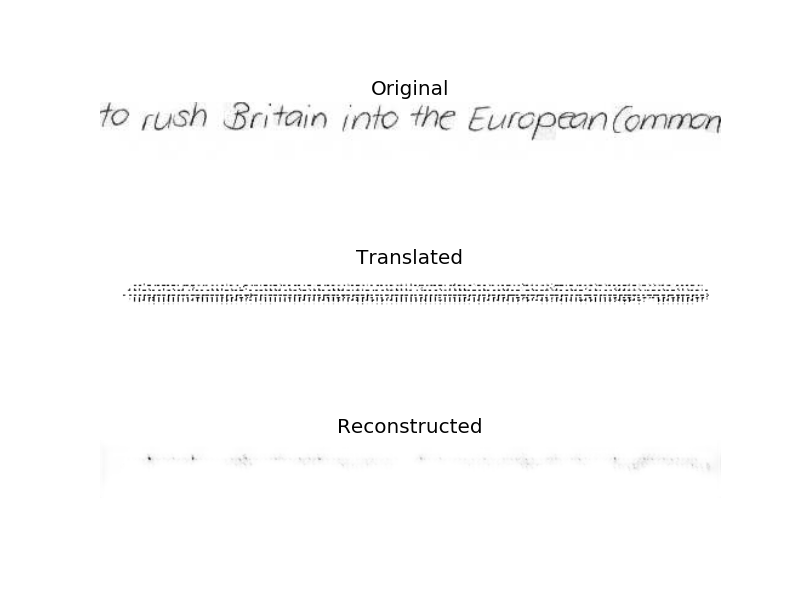 Original
to rush Britain into the European Common
Translated
Reconstructed